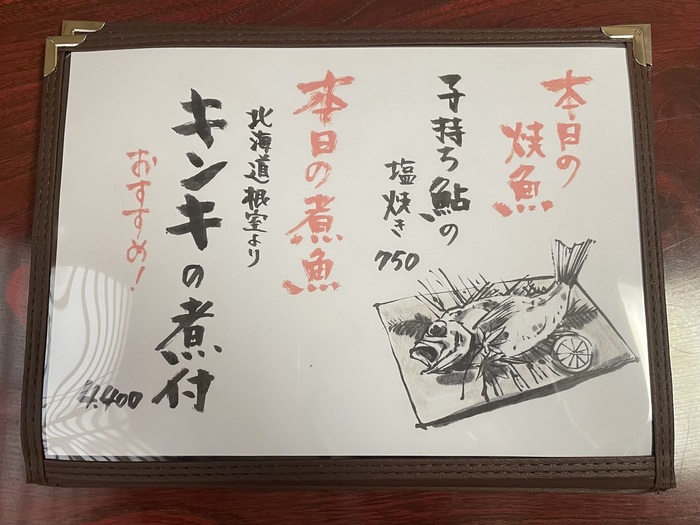 本日の
焼魚
子持ち鮎の
塩焼き
750
本日の煮魚
北海道根室より
キンキの煮付
4,400
おすすめ!